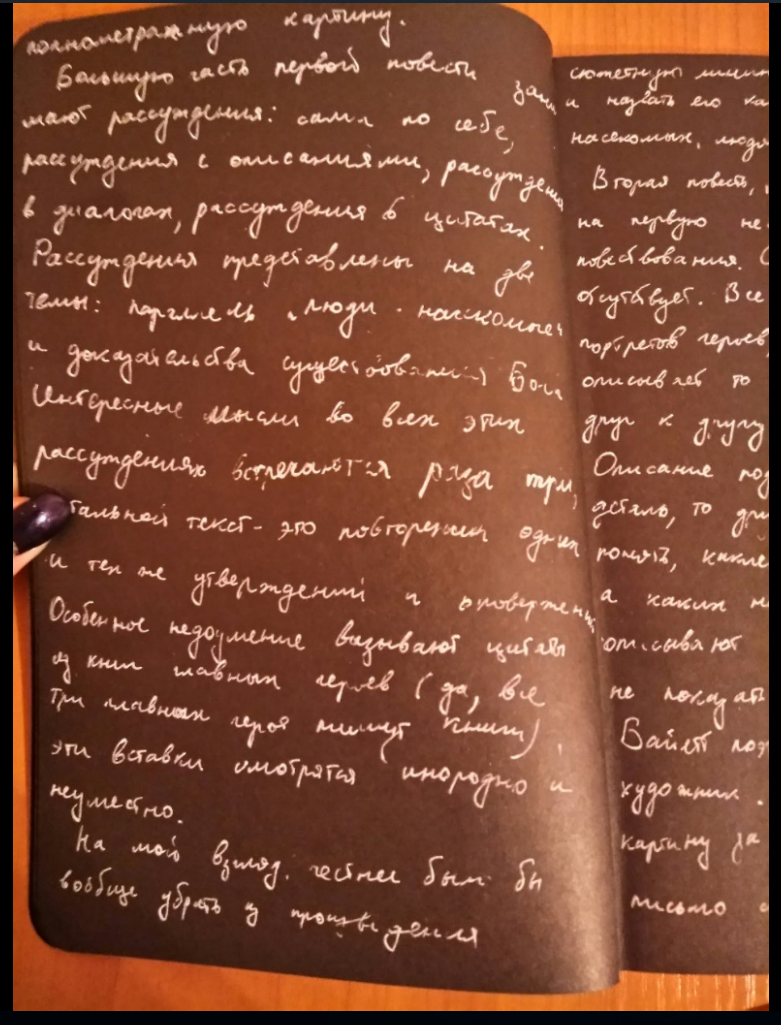 полнометражную картину.
Большую часть первой повести зани
мают рассуждения: сами по себе,
рассуждения с описаниями, рассуждения
в диалогах, рассуждения в цитатах.
Рассуждения представлены на две
темы: параллель люди - насекомые
и доказательства существования Бога
Интересные мысли во всех этих
рассуждениях встречаются раза три,
тальной текст - это повторении одних
и тех же утверждений и опровержений
Особенное недоумение вызывают цитаты
из книг главных героев (да, все
три главных героя пишут книги),
эти вставки смотрятся инородно и
неуместно.
На мой взгляд, честнее было бы
вообще убрать из произведения
сюжетную линию
и назвать его ка
насекомых, людя
Вторая повесть,
на первую не
повествования. С
отсутствует. Все
портретов героев,
описывает то
друг к другу
Описание под
деталь, то дру
понять, какие
а каких н
описывают
не показать
Байетт поэ
художник.
картину за
письмо с